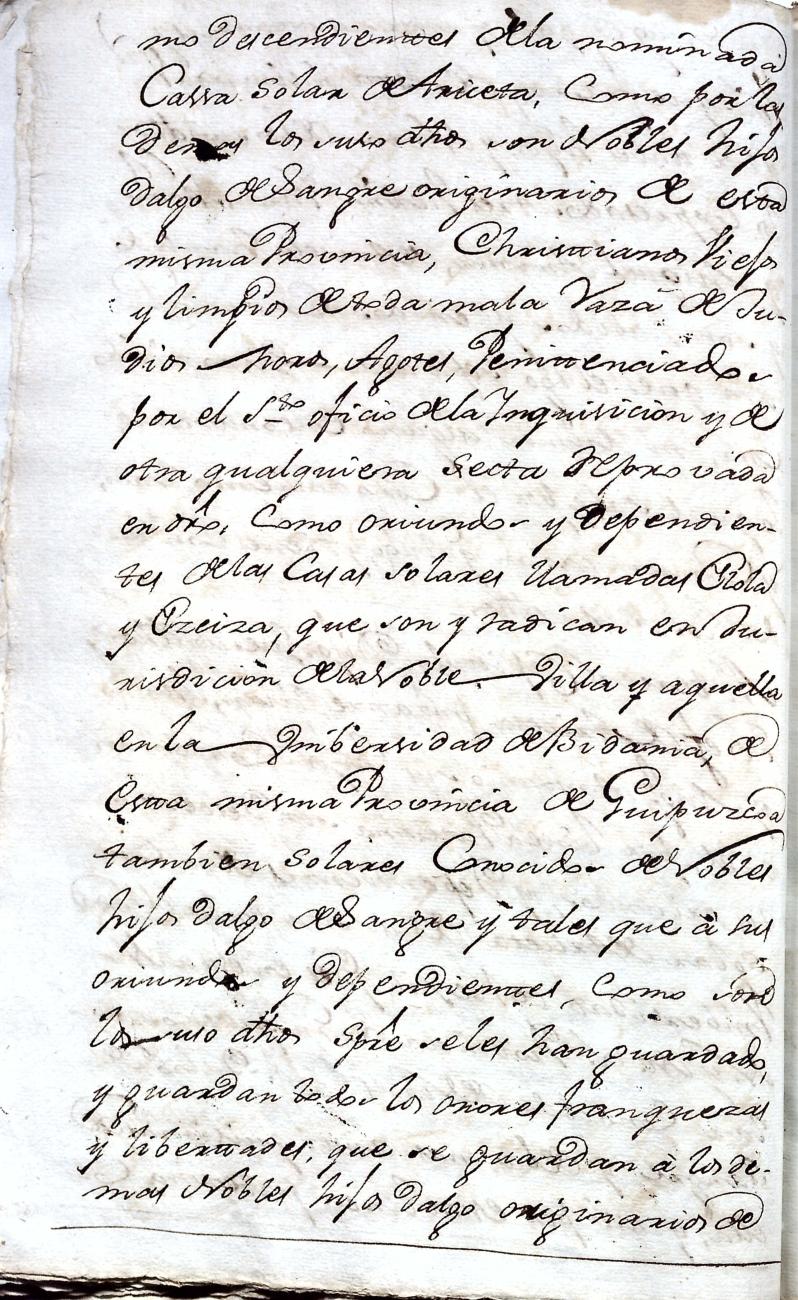 mo descendientes de la nominada
Cassa Solar de Ariceta, Como por las
demas los suso dhos son Nobles hijos
dalgo de Sangre originarios de esta
misma Provincia, Christianos Viejos
y limpios de toda mala Raza de Ju-
dios Moros, Agotes, Penitenciados
por el Sto oficio de la Inquisicion y de
otra qualquiera Secta Reprovada
en dro, Como oriundos y Dependien-
tes de las Casas solares llamadas Olola
y Ezeiza, que son y radican en Ju-
risdicion de la Noble Villa y aquella
en la Vnibersidad de Bidania, de
Esta misma Provincia de Guipuzcoa
tambien Solares Conocidos de Nobles
hijos dalgo de Sangre y tales que à sus
oriundos y dependientes, Como son
los suso dhos Spre se les han guardado,
y guardan todos los onores franquezas
y libertades, que se guardan à los de-
mas Nobles hijos dalgo originarios de